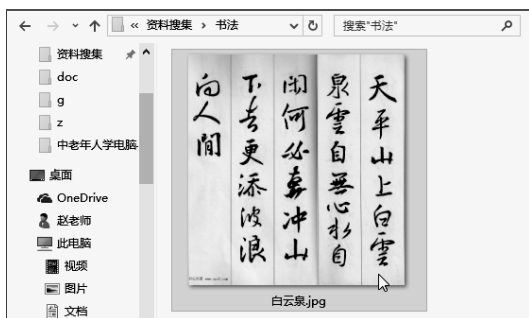 « 资料搜集 › 书法
搜索"书法"
资料搜集
doc
g
z
中老年人学电脑
桌面
OneDrive
赵老师
此电脑
视频
图片
文档
天平山上白雲
泉雲自無心水自
闲何必奔冲山
下去更添波浪
向人間
白云泉.jpg